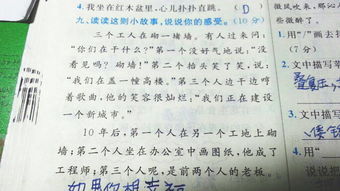 4.我坐在红木盆里,心儿扑扑直跳。 (D)
九、读读这则小故事,说说你的感受。(10分)
三个工人在砌一堵墙。有人过来问:
“你们在干什么?”第一个没好气地说:“没
看见吗?砌墙!”第二个抬头笑了笑,说:
“我们在盖一幢高楼。”第三个人边干边哼
着歌曲,他的笑容很灿烂:“我们正在建设
一个新城市。”
10年后,第一个人在另一个工地上砌
墙;第二个人坐在办公室中画图纸,他成了
工程师;第三个人呢,是前两个人的老板。
如果你想幸福
微风吹来,那沁
些微醉了。
1.用“/”画去括号
(7分)
2.文中描写萃
3.文中描写
4.用“
说说把